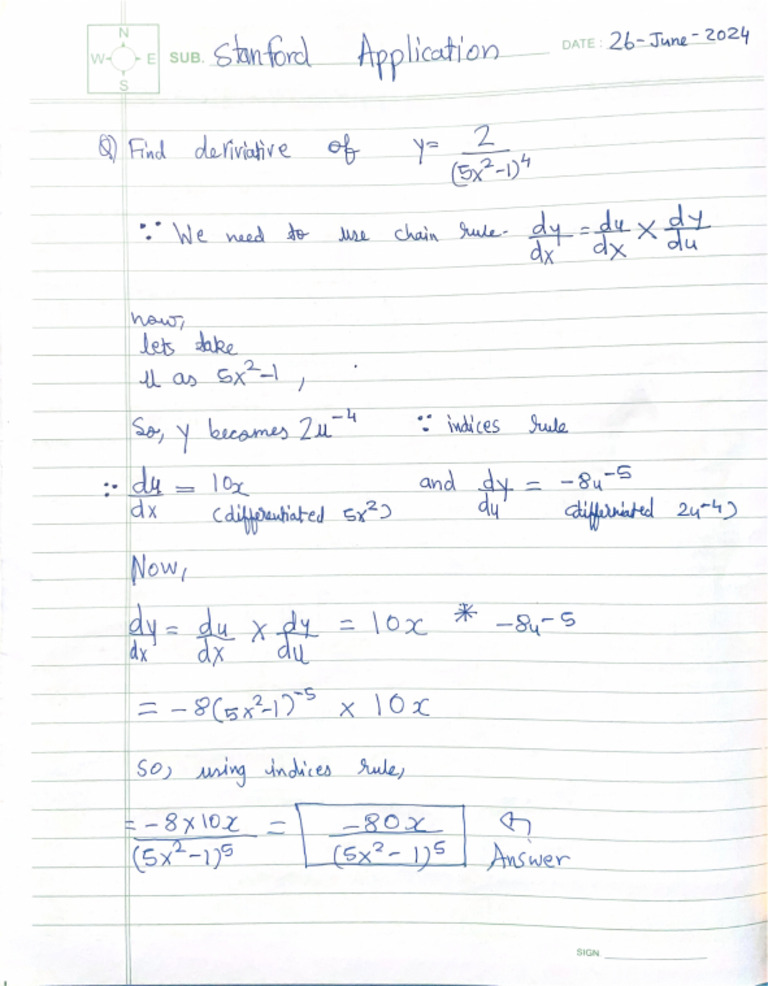 N
W E SUB. Stanford Application DATE: 26-June-2024
S
Q) Find deriviative of y= 2/(5x²-1)⁴
∵ We need to use chain rule. dy/dx = du/dx × dy/du
now,
lets take
u as 5x²-1,
So, y becomes 2u⁻⁴ ∵ indices rule
∵ du/dx = 10x and dy/du = -8u⁻⁵
(differentiated 5x²) (differniated 2u⁻⁴)
Now,
dy/dx = du/dx × dy/du = 10x * -8u⁻⁵
= -8(5x²-1)⁻⁵ × 10x
So, using indices rule,
= -8×10x/(5x²-1)⁵ = -80x/(5x²-1)⁵ ↰
Answer
SIGN